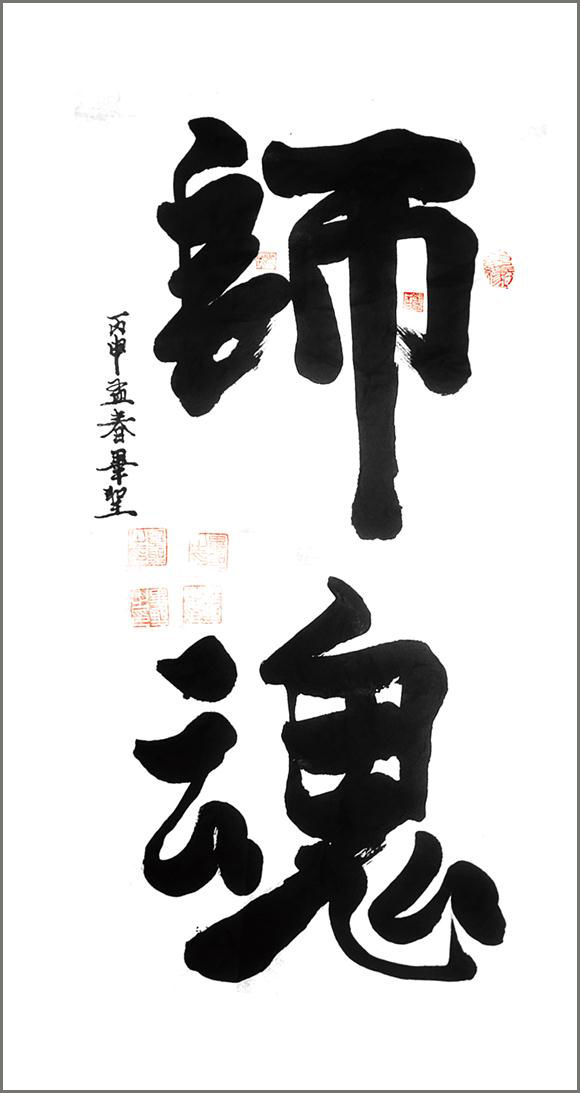 師
魂
丙申孟春畢聖